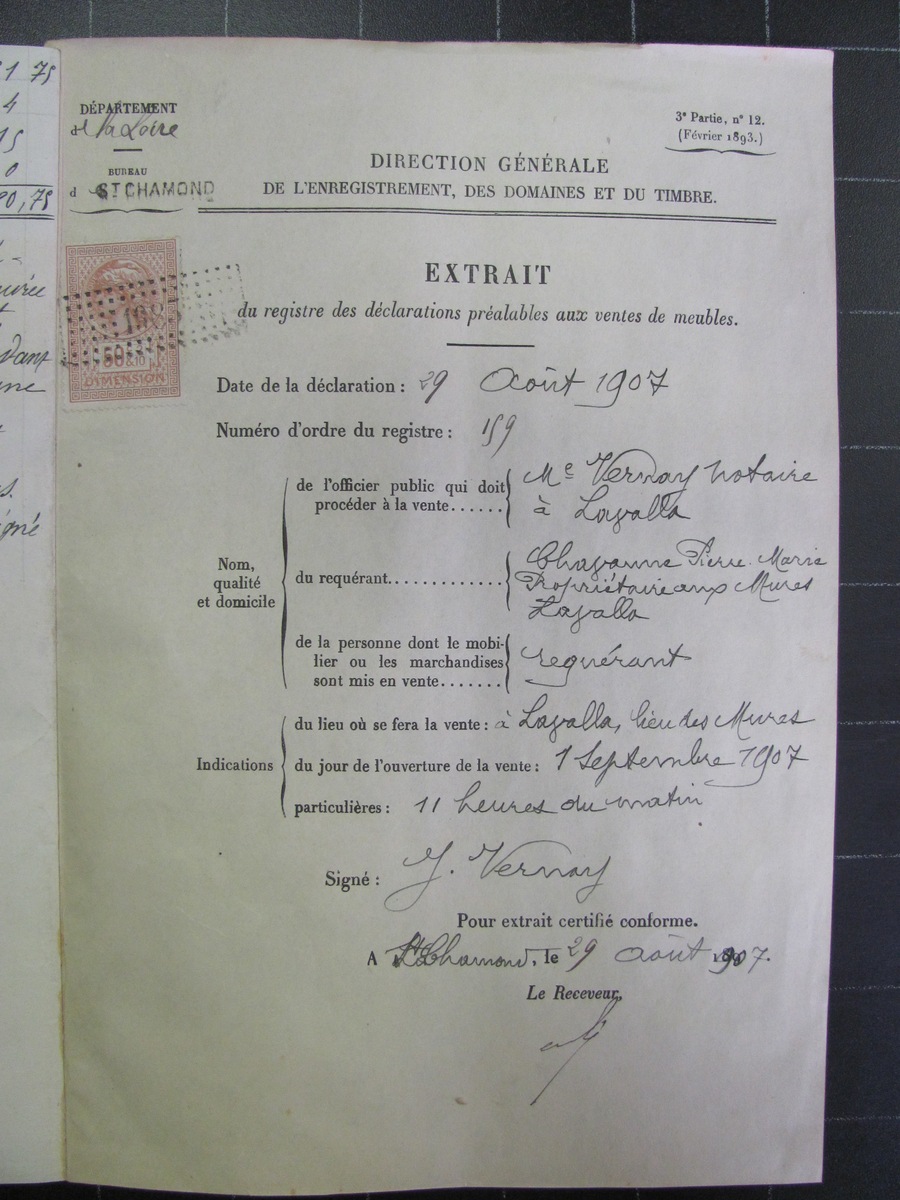 1 75
4
15
0
20,75
DÉPARTEMENT
de la Loire
BUREAU
d ST CHAMOND
3e Partie, n° 12.
(Février 1893.)
DIRECTION GÉNÉRALE
DE L'ENREGISTREMENT, DES DOMAINES ET DU TIMBRE.
198
50 & 10
DIMENSION
EXTRAIT
du registre des déclarations préalables aux ventes de meubles.
Date de la déclaration : 29 Août 1907
Numéro d'ordre du registre : 159
Nom,
qualité
et domicile
de l'officier public qui doit
procéder à la vente......
Me Vernay notaire
à Lavalla
du requérant............
Chavanne Pierre Marie
Propriétaire aux Mures
Lavalla
de la personne dont le mobi-
lier ou les marchandises
sont mis en vente.......
requérant
Indications
du lieu où se fera la vente : à Lavalla, lieu des Mures
du jour de l'ouverture de la vente : 1 Septembre 1907
particulières : 11 heures du matin
Signé : J. Vernay
Pour extrait certifié conforme.
A St Chamond, le 29 août 1907.
Le Receveur,